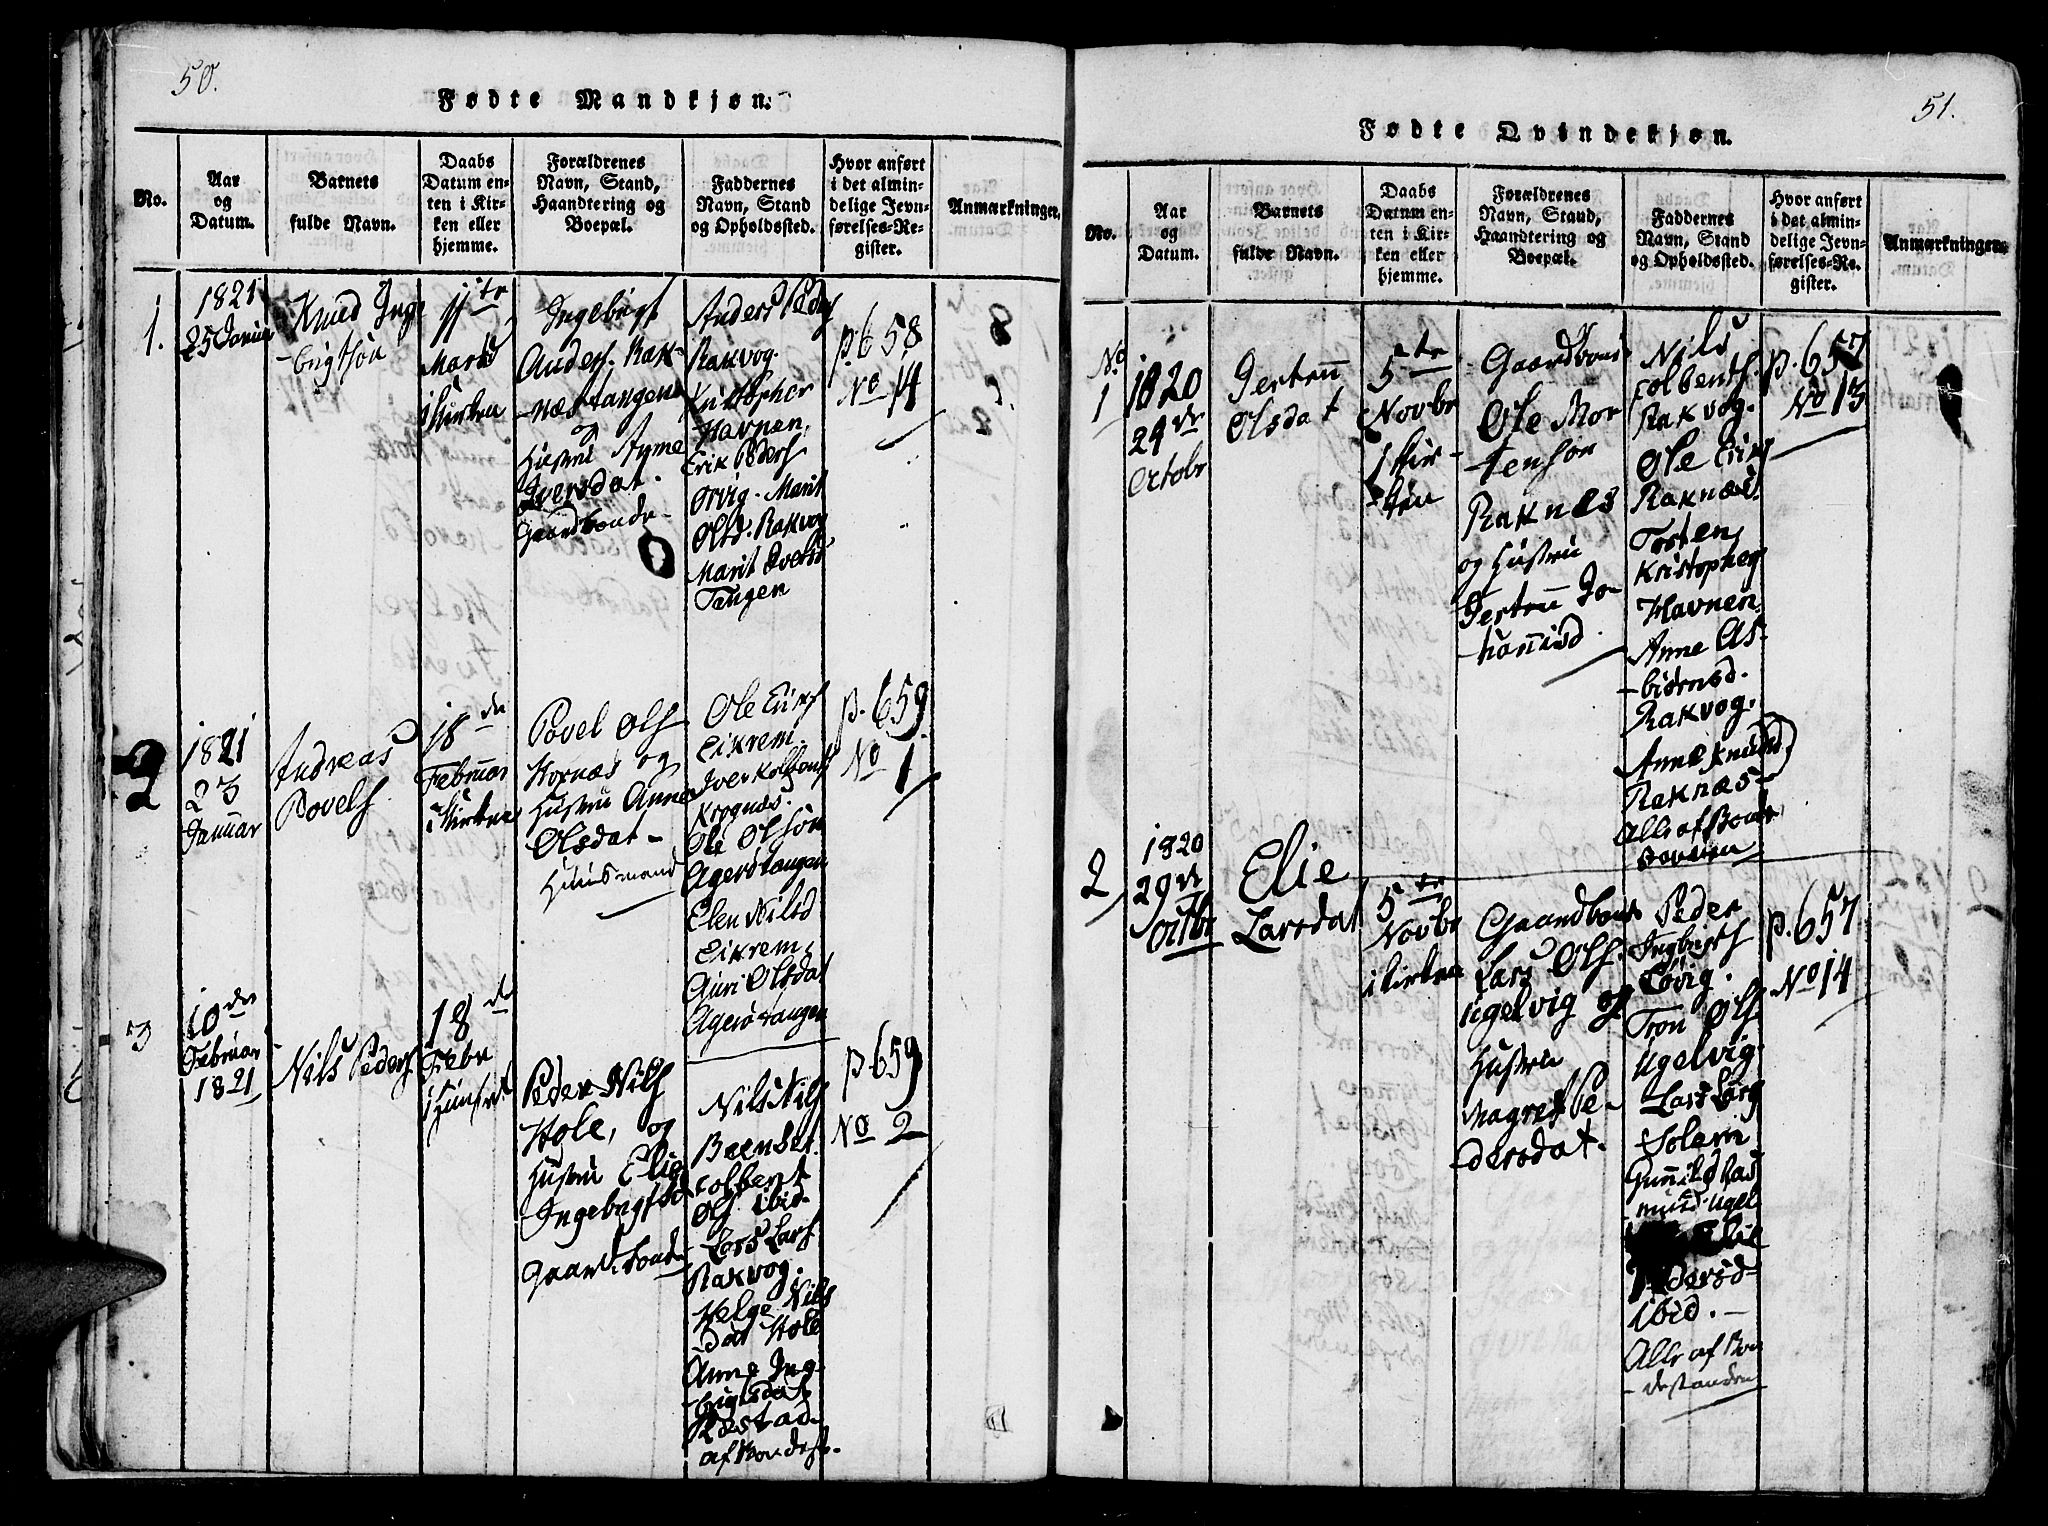 50.
Fødte Mandkjøn.
No.
Aar
og
Datum.
Barnets
fulde Navn.
Daabs
Datum en-
ten i Kir-
ken eller
hjemme.
Forældrenes
Navn, Stand,
Haandtering og
Boepæl.
Faddernes
Navn, Stand
og Opholdssted.
Hvor anført
i det almin-
delige Jevn-
førelses-Re-
gister.
Anmærkninger.
1.
1821
25 Januar
Knud Inge
-brigtsøn
11te
Marts
i Kirken
Ingebrigt
Anders. Rak-
-næstangene
og
Hustru Anne
Iversdat.
Gaardbonde-
Anders Peders
Rakvog.
Kristopher
Havnen,
Erik Peders
Orvig. Marit
Olsd. Rakvog
Marit Iversd
Tangen
p. 658
No 14
2
1821
23
Januar
Andreas
Povels
18de
Februar
i Kirken
Povel Ols
Hornæs og
Hustru Anne
Olsdat-
Huusmand
Ole Eriks
Eikrem.
Iver Kolbents
Krognæs.
Ole Olsøn
Agerøtangen
Elen Nilsd
Eikrem,
Guri Olsdat
Agerøtangen
p. 659
No 1
3
10de
Februar
1821
Nils Peders
18de
Febr
Peder Nils
Hole, og
Hustru Elie
Ingebrigtsd
Gaardbonde
Nils Nils
Baenset.
Colbent
Ols ibid-
Lars Lars
Rakvog.
Helge Nils
dat Hole
Anne Ing-
-brigtsdat
af Bondest.
p 659
No 2
51.
Fødte Qvindekjøn.
No.
Aar
og
Datum.
Barnets
fulde Navn.
Daabs
Datum en-
ten i Kir-
ken eller
hjemme.
Forældrenes
Navn, Stand,
Haandtering og
Boepæl.
Faddernes
Navn, Stand
og Opholdssted.
Hvor anført
i det almin-
delige Jevn-
førelses-Re-
gister.
Anmærkninger.
No
1
1820
24de
Octobr
Gertru
Olsdat
5te
Novbr
i Kir-
-ken
Gaardbond
Ole Mor
tensøn
Raknes
og Hustru
Gertru Jo-
-hannisd.
Nils
Colbents.
Rakvog.
Ole Erik
Raknæs.
Torsten
Kristophers
Havnen.
Anne As-
-biørnsd.
Rakvog.
Anne Knudsd
Raknæs-
Alle af Bonde
standen
p. 657
No 13
2
1820
29de
Octbr
Elie
Larsdat
5te
Novbr
i Kirken
Gaardbond
Lars Ols.
Ugelvig og
Hustru
Magret Pe-
-dersdat.
Peder
Ingbrigts
Løvig.
Tron Ols
Ugelvig.
Lars Lars
Solem
Gunnild Ras
musd Ugel
Elie
Pedersd-
ibid.-
Alle af Bon
-destanden
p. 657
No 14